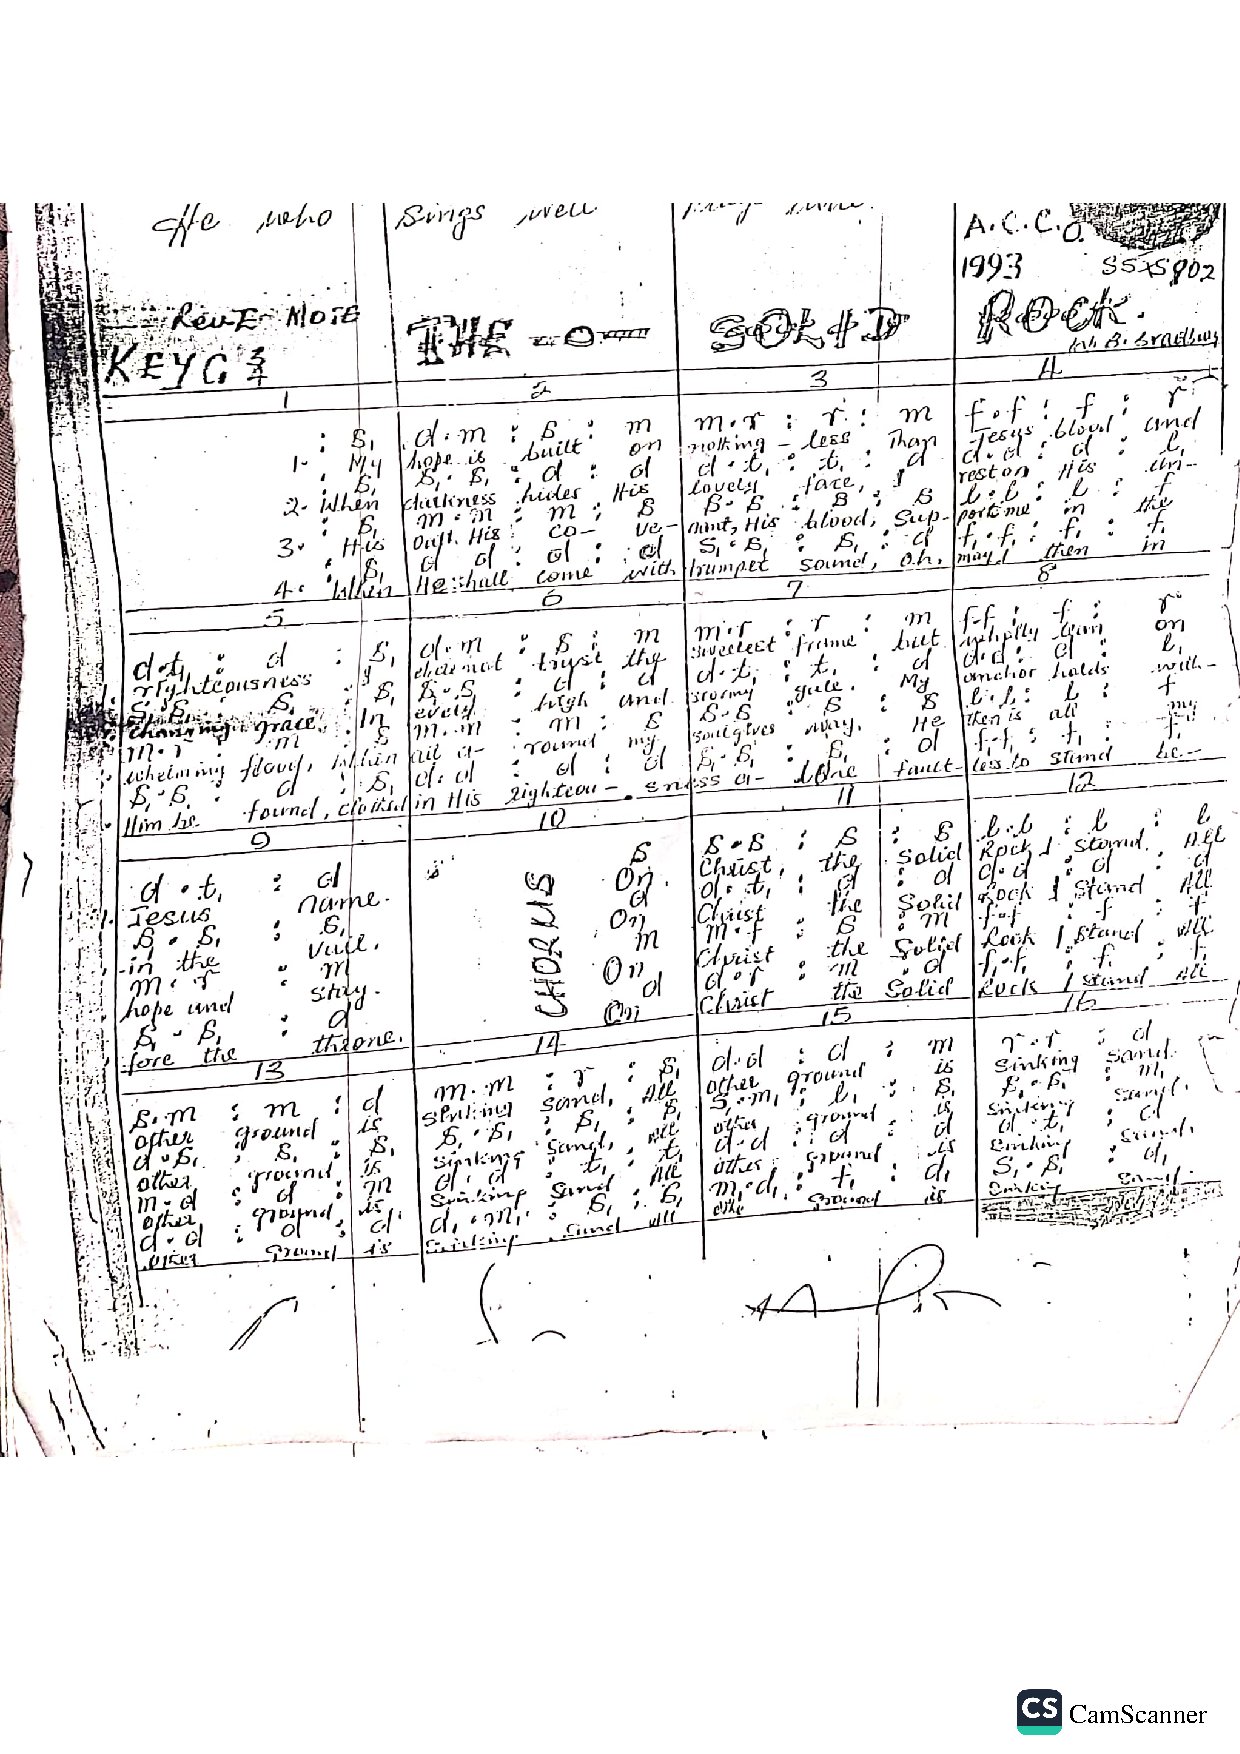 He who sings well
A.C.C.O.
1993 SSXS902
KEY G 3/4 THE -o- SOLID ROCK.
1 2 3 4
: s, d.m : s : m m.r : r : m f.f : f : r
1. My hope is built on nothing - less Than Jesus blood and
s, s,. s, : d : d d.t, : t, : d d.d : d : l,
2. When darkness hides His lovely face, I rest on His un-
s, m.m : m : s s.s : s : s l.l : l : f
3. His oath, His co- ve- nant, His blood, Sup- port me in the
s, d d : d : d s,.s, : s, : d f,.f, : f, : f,
4. When He shall come with trumpet sound, oh, may I then in
5 6 7 8
d.t, : d : s, d.m : s : m m.r : r : m f.f : f : r
righteousness I dare not trust the sweetest frame but wholly lean on
s,.s, : s, : s, s,.s, : d : d d.t, : t, : d d.d : d : l,
changing grace. In every high and stormy gale. My anchor holds with-
m.r : m : s m.m : m : s s.s : s : s l.l : l : f
whelming flood, When all a- round my soul gives way, He then is all my
s,.s, : d : s, d.d : d : d s,.s, : s, : d f,.f, : f, : f,
Him be found, clothed in His righteou-sness a- lone fault- less to stand be-
9 10 11 12
d.t, : d s s.s : s : s l.l : l : l
Jesus name. On Christ, the Solid Rock I stand. All
s,.s, : s, d d.t, : d : d d.d : d : d
in the vail. On Christ the Solid Rock I Stand All
m.r : m m m.f : s : m f.f : f : f
hope and stay. On Christ the Solid Rock I Stand All
s,.s, : d d d.r : m : d f,.f, : f, : f,
fore the throne. On Christ the Solid Rock I stand All
CHORUS
13 14 15 16
s.m : m : d m.m : r : s, d.d : d : m r.r : d
other ground is sinking sand, All other ground is sinking sand.
d.s, : s, : s, s,.s, : s, : s, s,.m, : l, : s, s,.s, : m,
other ground is sinking sand, All other ground is sinking sand.
m.d : d : m d.d : t, : t, d.d : d : d d.t, : d
other ground is sinking sand All other ground is sinking sand.
d.d : d : d d,.m, : s, : s, m,.d, : f, : d, s,.s, : d,
other ground is sinking sand All ground is sinking sand.
CS CamScanner